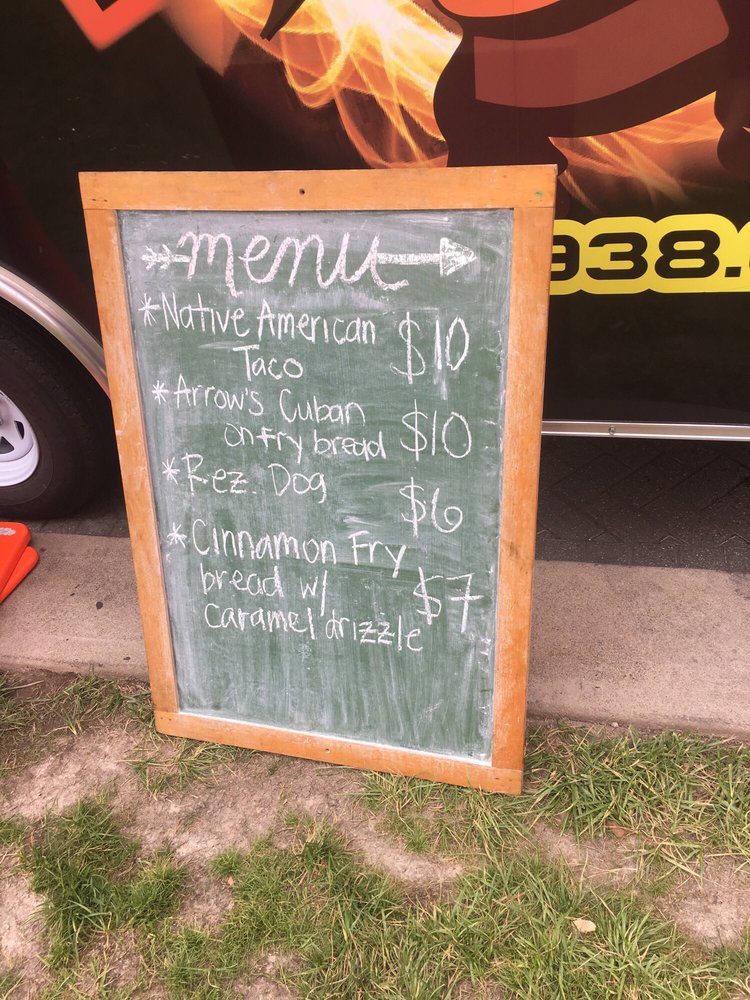 menu
*Native American $10
Taco
*Arrow's Cuban
on fry bread $10
*Rez. Dog $6
*Cinnamon Fry
bread w/ $7
caramel drizzle
938.